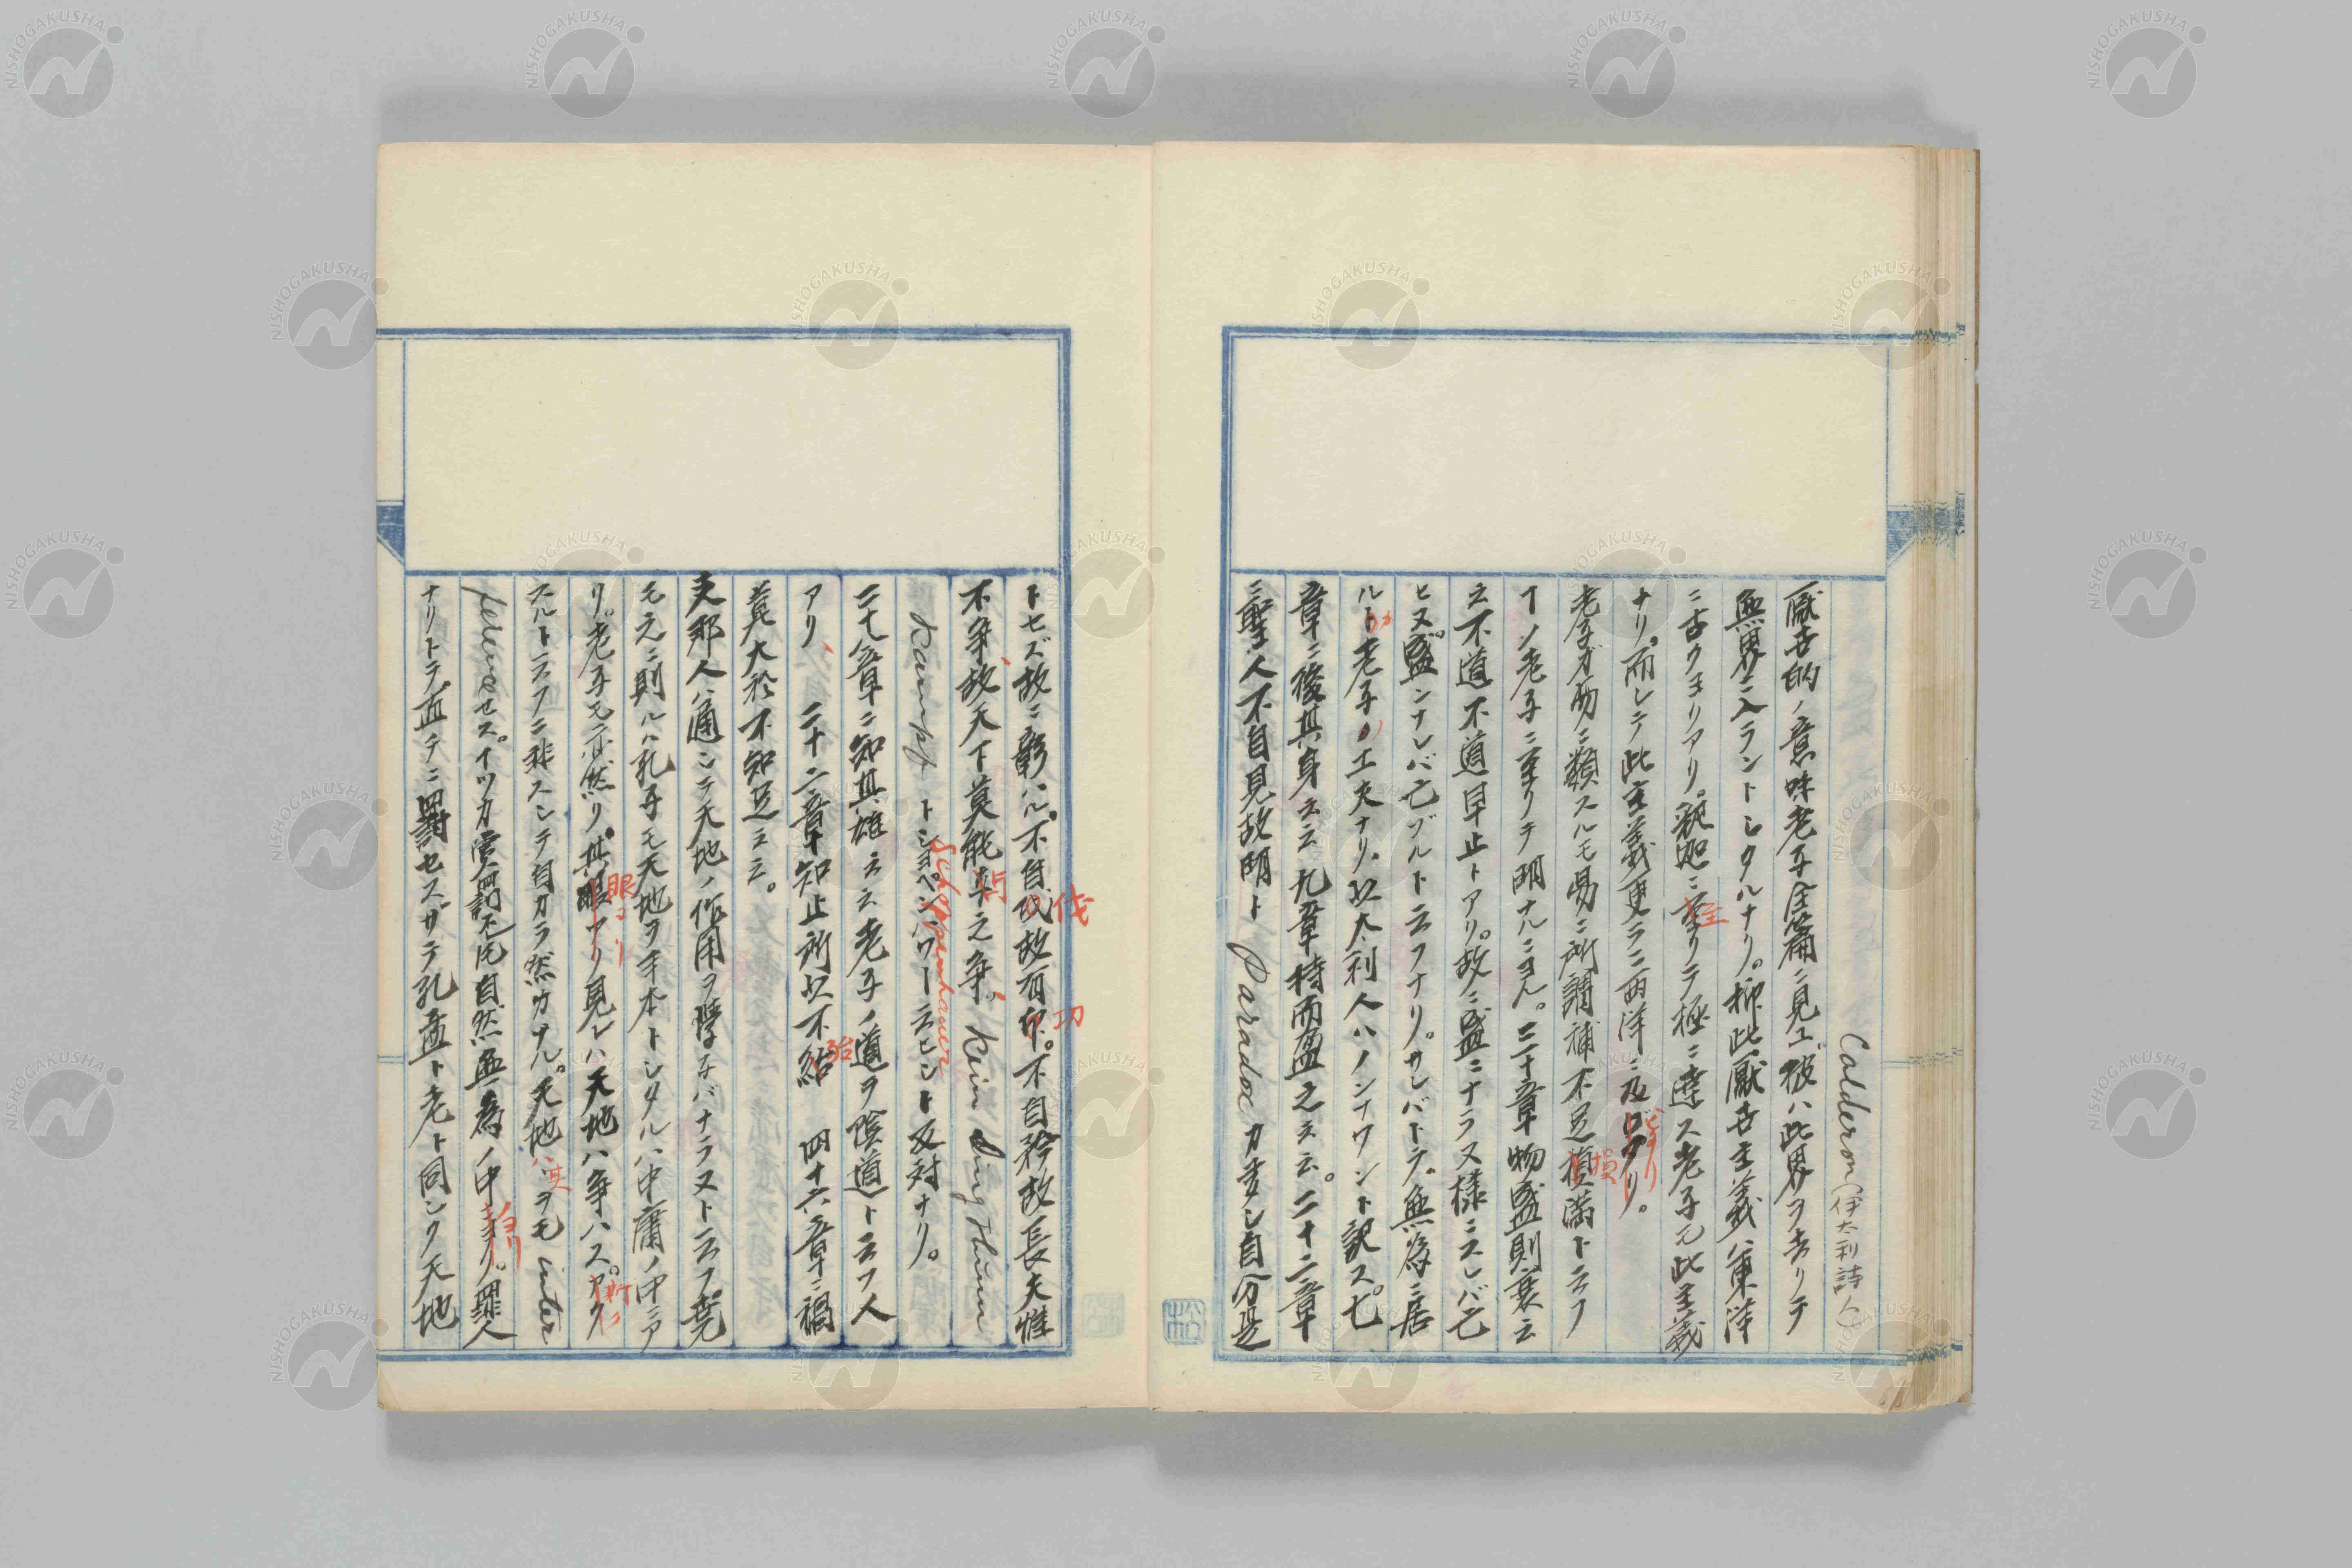 Calderon(伊太利詩人)
厭世的ノ意味老子全篇ニ見ユ彼ハ此界ヲ去リテ
無界ニ入ラントシタルナリ。抑此厭世主義ハ東洋
ニ古クヨリアリ。釈迦ニ至リテ極ニ達ス老子モ此主義
ナリ。而シテ此主義更ラニ西洋ニ及ロタリ。
老子ガ易ニ類スルモ易ニ所謂補不足損満ト云フ
ノ老子ニ至リテ明ナルニヨル。三十章物盛則衰云
云不道不道早止トアリ。故ニ盛ニナラヌ様ニスレバ亡
ヒヌ。盛ンナレバ亡ブルト云フナリ。サレバトテ。無為ニ居
ルト老子ノ工夫ナリ。以大利人ハノンナワント訳ス。七
章ニ後其身云云九章持而盈之云云。二十二章
ニ聖人不自見故明ト Paradox カ多シ自分是
トセズ故ニ彰ハル。不自伐故有功。不自矜故長夫惟
不争、故天下莫能与之争。Kein Ding thun
Kampf トショペンハワー云ヒシト反対ナリ。
Schoppenhauer
二十八章ニ知其雄云云老子ノ道ヲ陰道ト云フ人
アリ、 三十二章知止所以不殆 四十六章ニ禍
莫大於不知足云云。
支那人ハ通シテ天地ノ作用ヲ学ナバナラヌト云フ。堯
モ之ニ則ル、孔子モ天地ヲ手本トシタルハ中庸ノ中ニア
リ。老子モ亦然リ。其眼アリ見レハ天地ハ争ハス。アク
スルト云フニ非スシテ自カラ然カナル。天地ハ実ヲモ inter
セス。イツカ賞罰モ自然無為ノ中ヨリ。罪人
ナリトテ。直チニ罰セズサテ孔孟ト老ト同シク天地